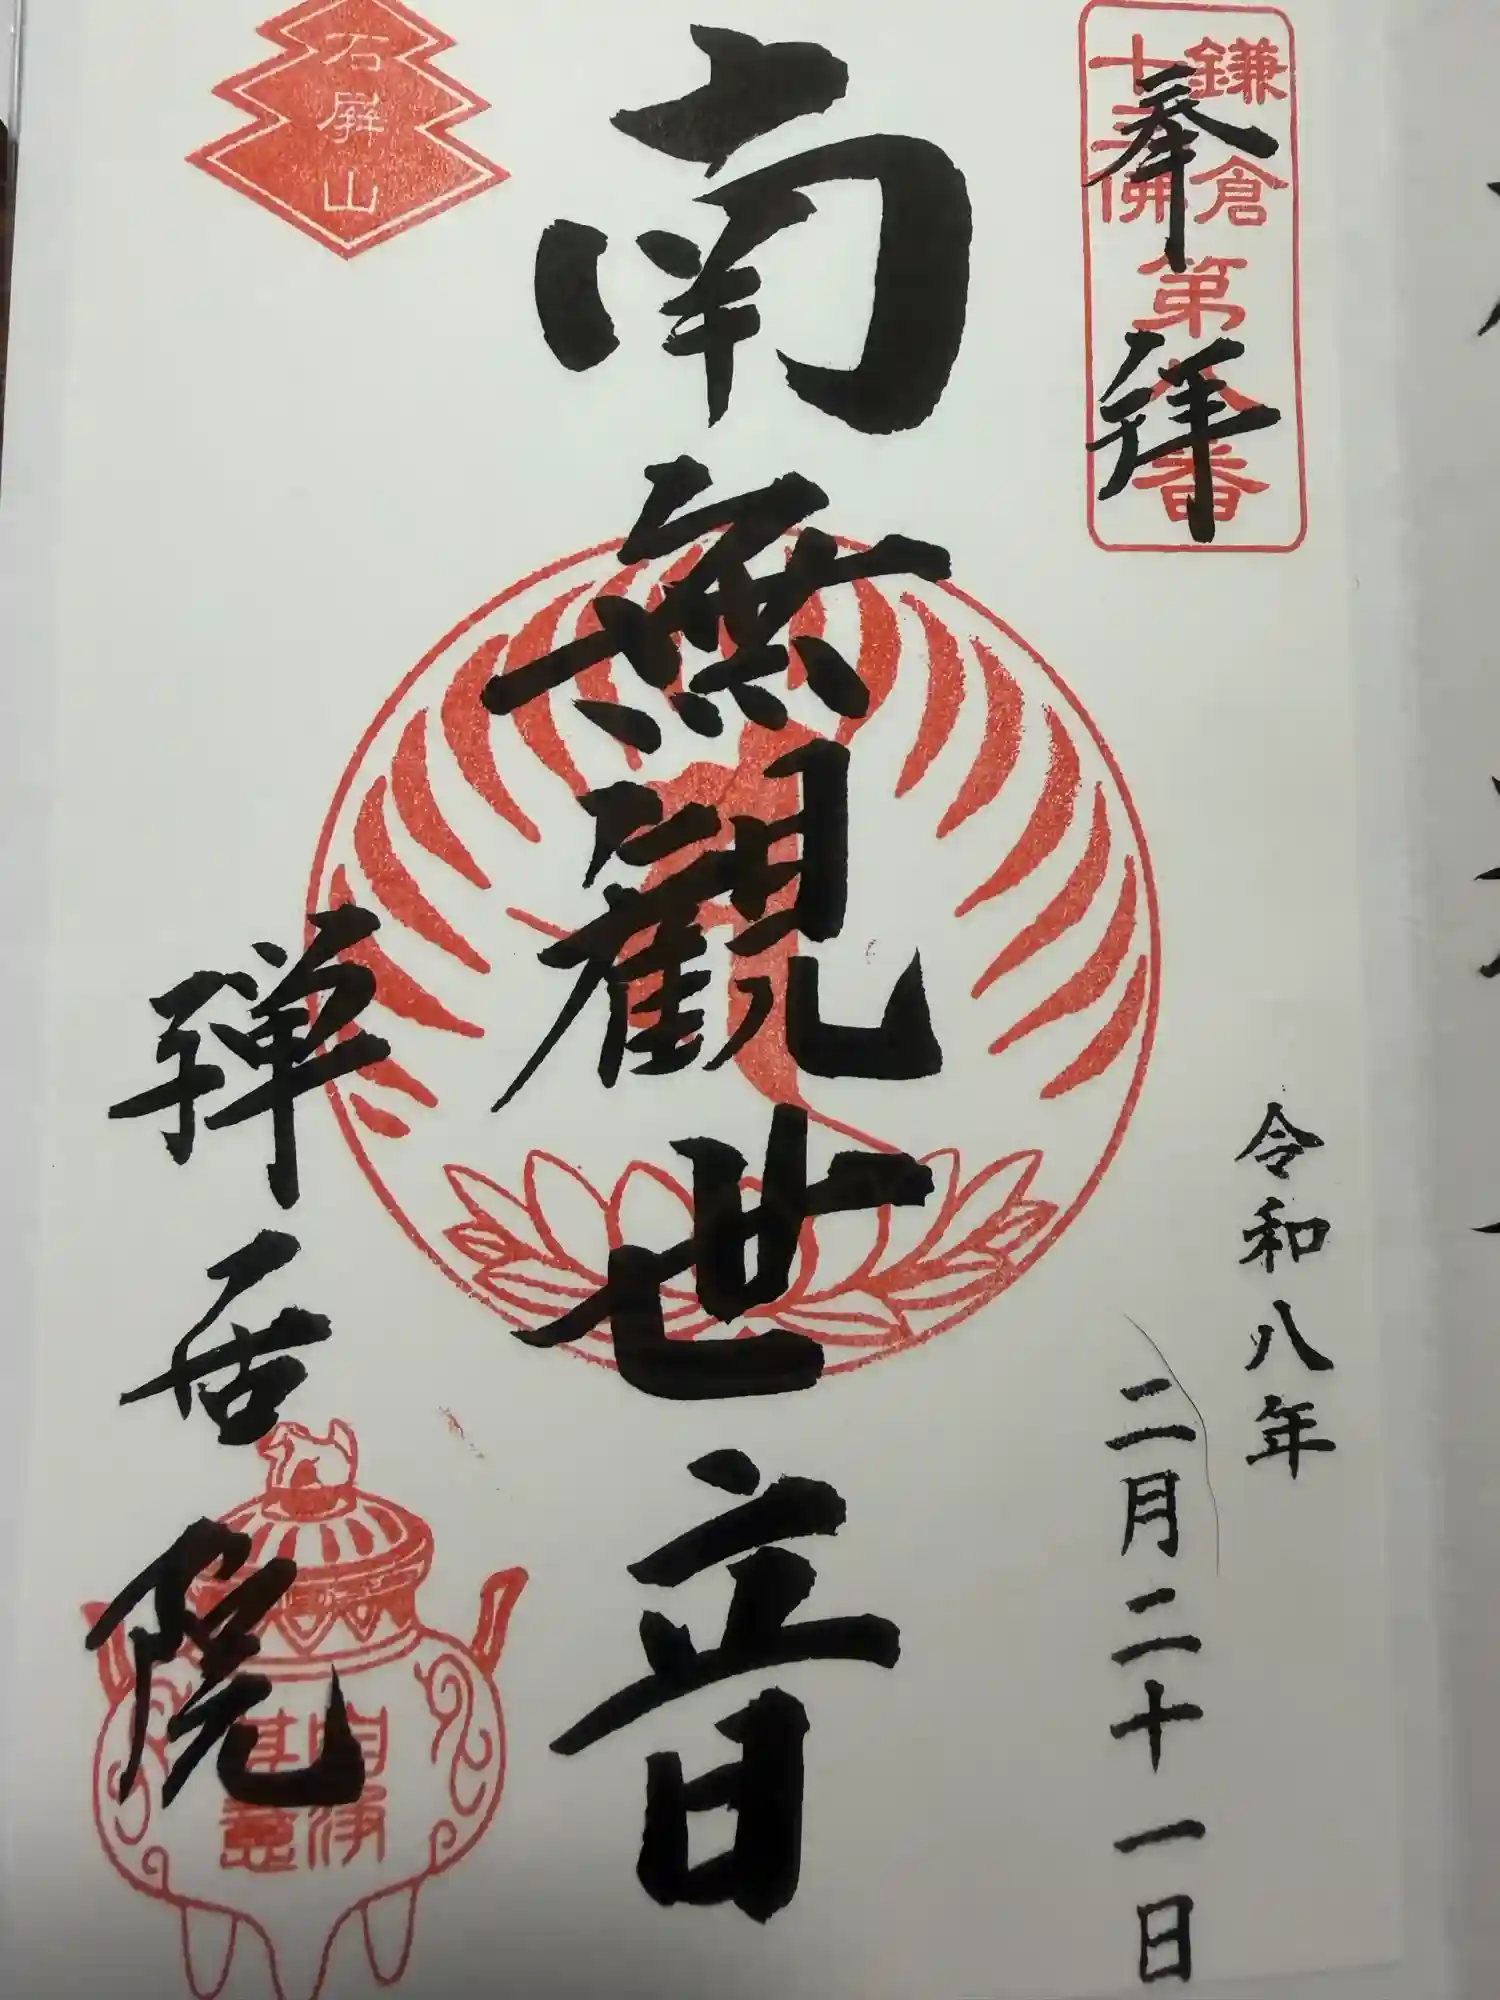 鎌倉
十三佛
第八番
奉拝
令和八年
二月二十一日
南無觀世音
石屏山
禅居院
自浄
其意